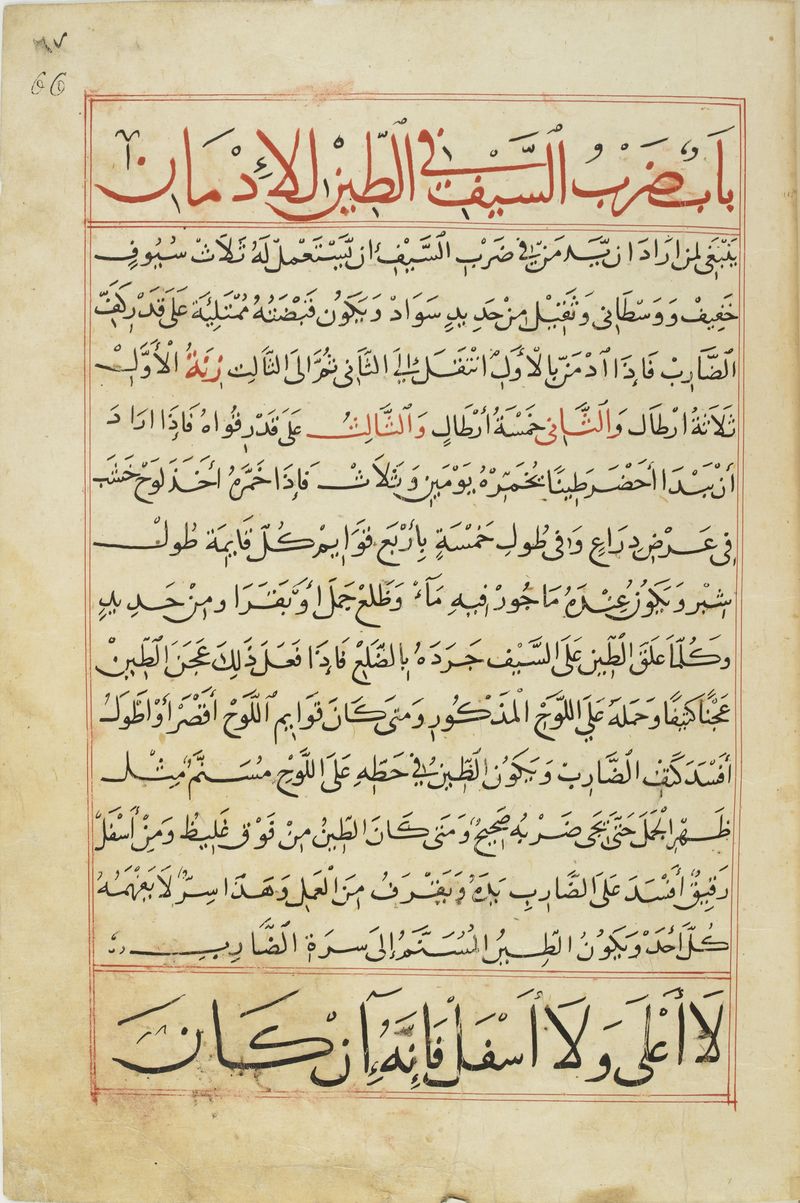 ٦٧
66
باب ضَرْبُ السَّيْف في الطِّين الإدْمَان
يَنْبَغِى لمن ارَادَ ان يَّدمَنّ في ضَرْبِ السَّيْف ان يَّسْتَعْملَ لهُ ثَلَاثْ سُيُوفٍ
خَفِيفْ وَوَسْطَانى وَثَقِيْل مِنْ حَدِيدٍ سَوَادْ وَيَكُون قَبْضَتُهُ مُمْتَلِئَة عَلَى قَدْرِ كَفّ
الضَّارِبْ فَاِذَا اَدْمَنّ بالْاَوَلْ انْتَقَلَ اِلَى الثَّانى ثُمَّ الى الثَّالِث زِنَةُ الْأَوَّلْ
ثَلَاثَةُ ارْطَال وَالثَّانى خَمْسَةُ أَرْطَالٍ وَالثَّالِثُ عَلَى قَدْرِ قُوَاهُ فَاِذَا ارَادَ
أَنْ يَبْدَا أَحْضَرَ طِينًا يُخَمِّرْهُ يَوْمَيْنِ وَثَلَاثْ فَاِذَا خَمَّرَهُ أخَذَ لَوْحْ خَشَبْ
فى عَرْضِ دِرَاعٍ وَفى طُولِ خَمْسَةٍ بِأَرْبَع قَوَايِمْ كُلّ قَايِمَة طُولْ
شِبْر وَيَكُونُ عِنْدَهُ مَاجُورْ فِيهِ مَآءْ وَظَلْعْ جَمَلْ اَوْ بَقَرَا ومِنْ حَدِيدٍ
وَكُلَّمَا عَلَقَ الْطِّين عَلَى السَّيْف جَرَدَهُ بِالضَّلَعْ فَاِذَا فَعَلَ ذَلِكَ عَجَنَ الْطِّينْ
عَجْنًا كَثِيفًا وَحَملَهُ عَلَى اللَّوْحْ الْمَذْكُورِ وَمَتى كَانَ قَوَايِم اللَّوْحْ أَقْصَرْ أَوْ اَطْوَلْ
أَفْسَدَ كَتِف الضَّارِبْ وَيَكُونُ الطِّينُ في حَطِّهِ عَلَى اللَّوْحِ مُسَنَّمٌ مِثْل
ظَهْرِ الْجَمَلْ حَتَّى يَجى ضَرْبُهُ صَحِيحٌ وَمَتى كَانَ الطِّينُ مِنْ فَوْق غَلِيظْ وَمِنْ أَسْفَلْ
رَقِيقٌ أَفْسَدَ عَلَى الضَّارِبِ يَدَهُ وَيَقْرَفُ مِنَ الْعَمَلِ وَهَذَا سِرٌّ لَا يَفْهَمُهُ
كُلّ أَحَدْ وَيَكُونُ الطِّينُ الْمُسَنَّمُ إلى سرَّةِ الضَّارِبِ
لَا أَعْلَى وَلَا أَسْفَلْ فَاِنَّهُ اِنْ كَانَ